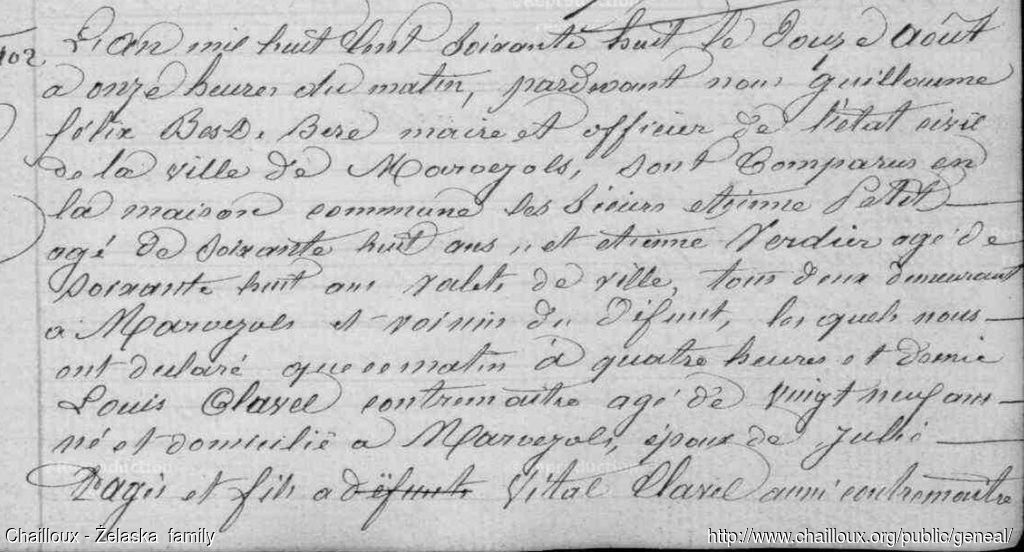 L'an mil huit cent soixante huit le douze août
102
a onze heures du matin, pardevant nous guillaume
félix Bes-D. Bere maire et officier de l'état civil
de la ville de Marvejols, sont Comparus en
la maison commune les sieurs etienne Petit
agé de soixante huit ans, et etienne Verdier agé de
soixante huit ans valets de ville, tous deux demeurant
a Marvejols et voisins du défunt, les quels nous
ont déclaré que ce matin à quatre heures et demie
Louis Clavel contremaitre agé de vingt neuf ans
né et domicilié a Marvejols, époux de Julie
Pagès et fils a défunts Vital Clavel aussi contremaitre
Chailloux - Żelaska family
http://www.chailloux.org/public/geneal/